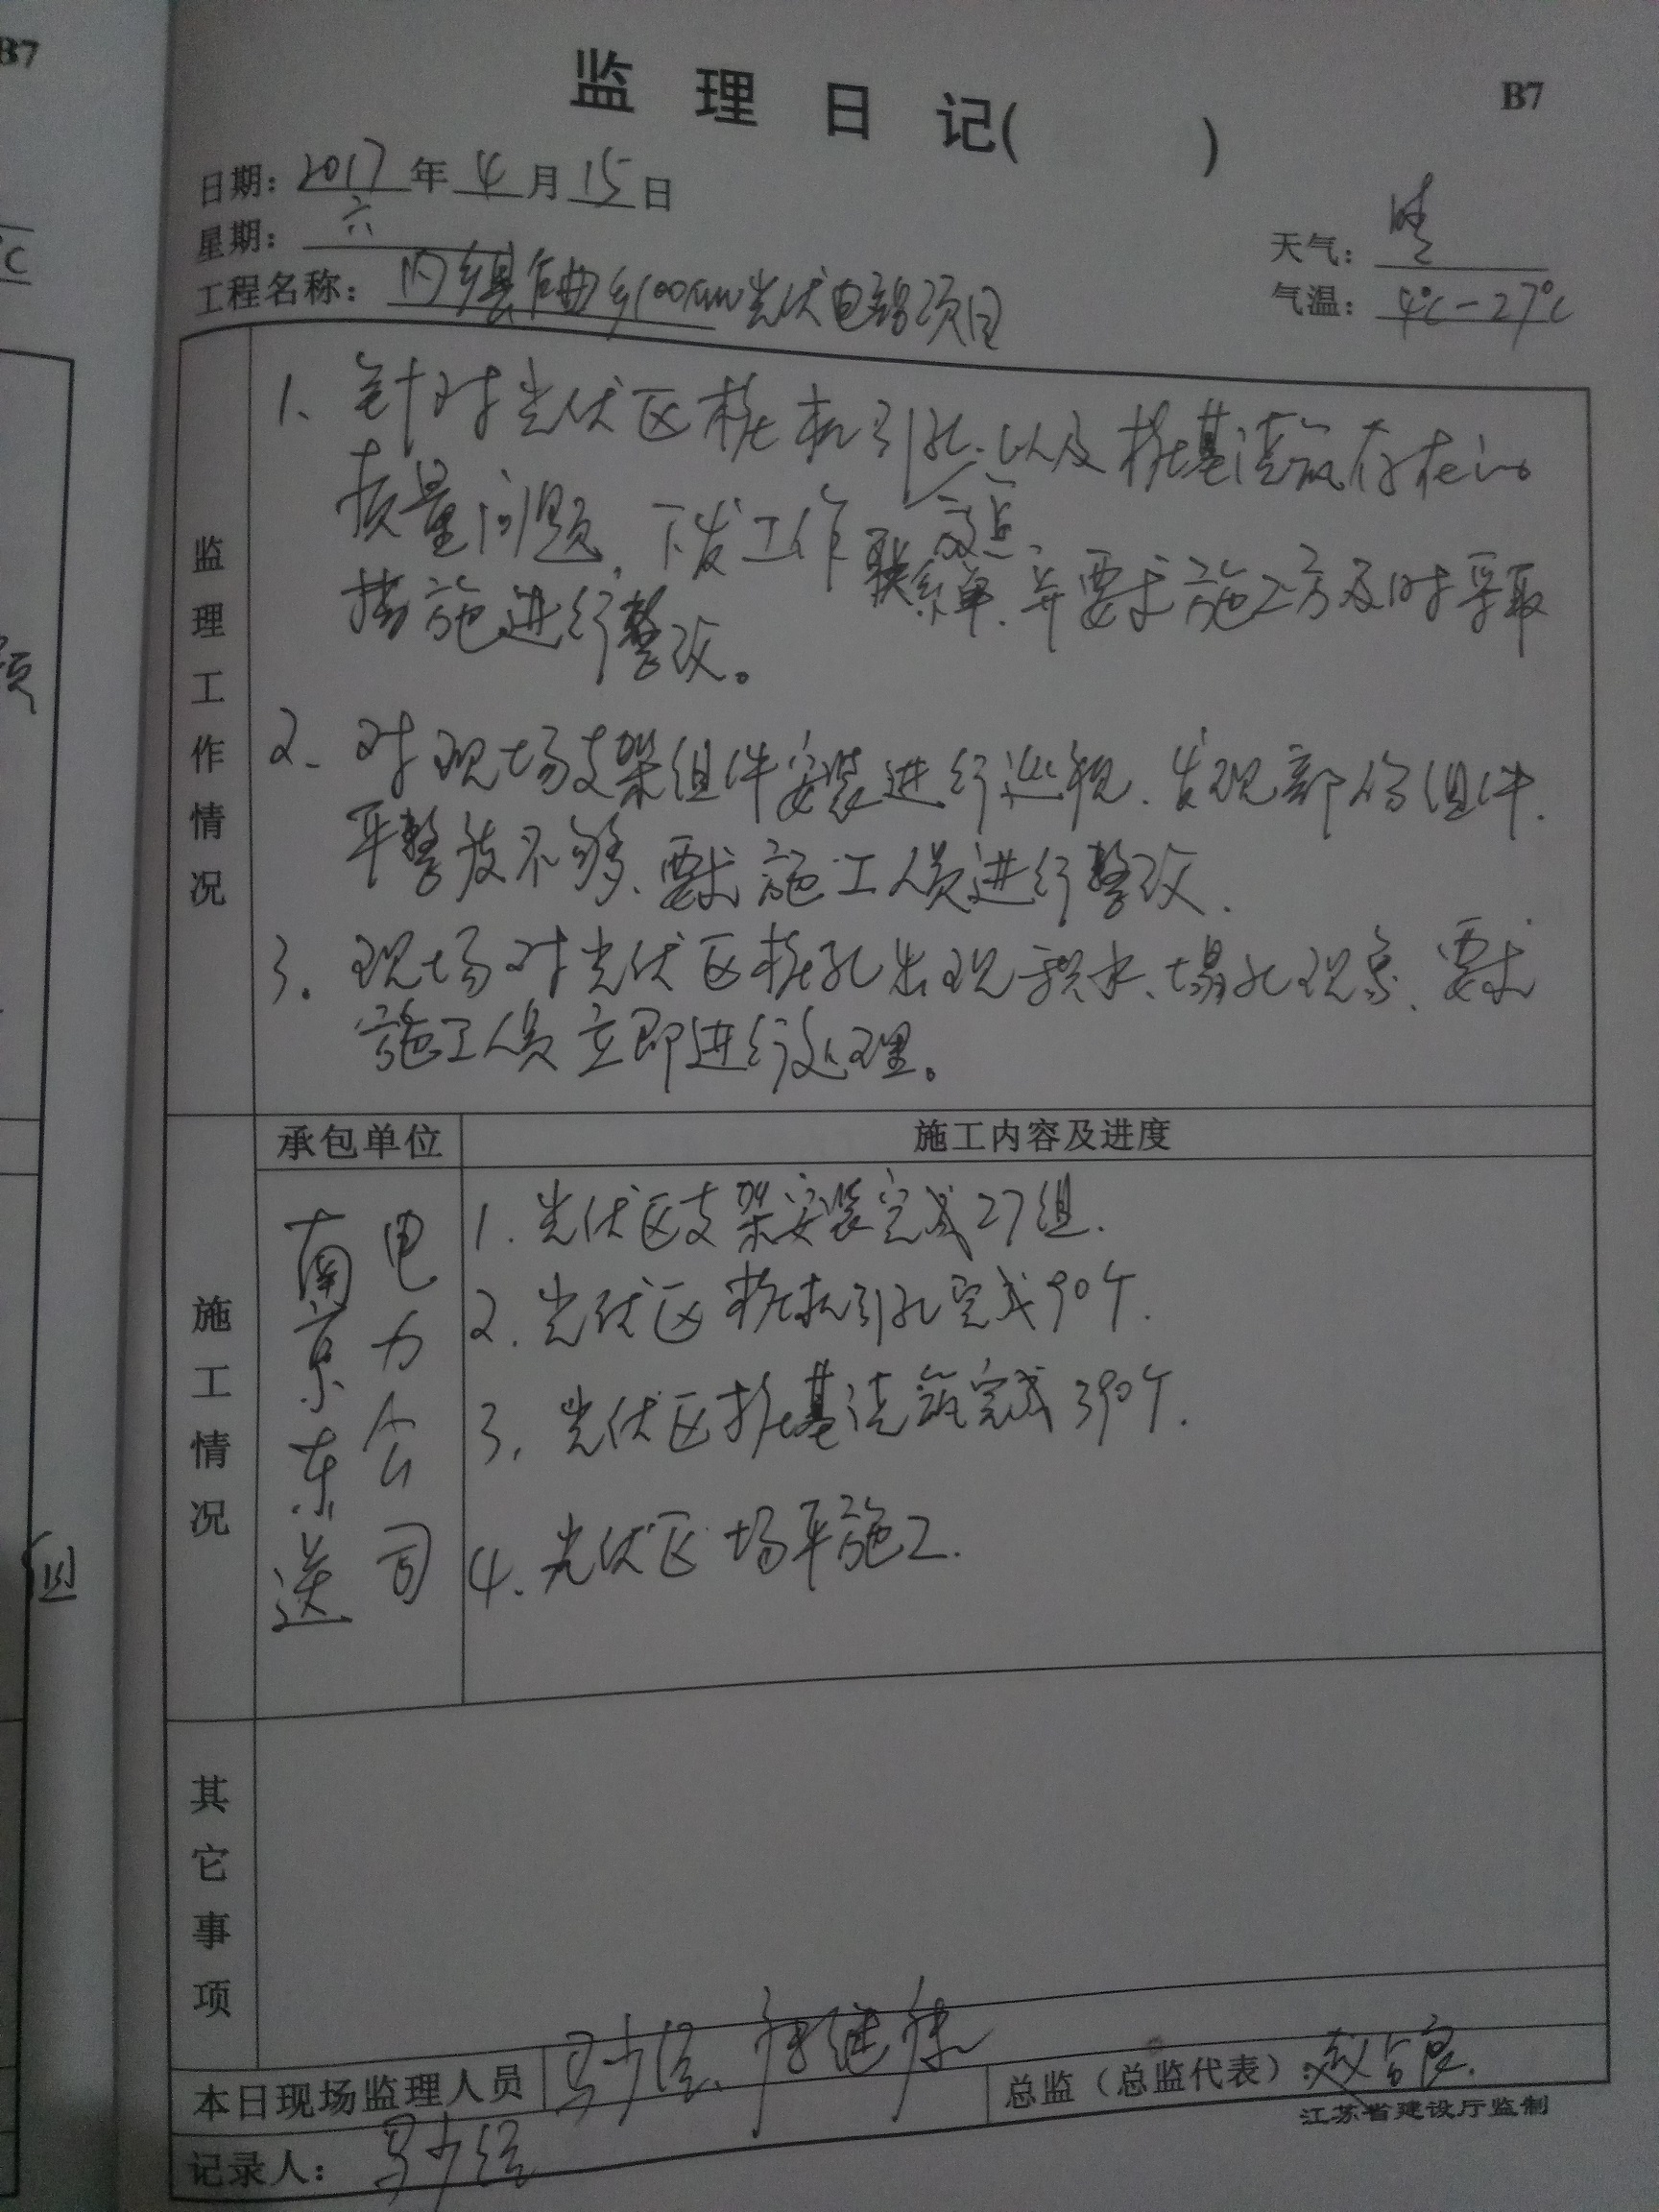 B7
℃
项
组
监理日记( )
B7
日期：2017年4月15日
星期：六
天气：晴
工程名称：内乡县乍曲乡100MW光伏电站项目
气温：4℃-27℃
监理工作情况
1、针对光伏区桩机引孔、以及桩基浇筑存在的
质量问题，下发工作联系单、并要求施工方及时采取
措施进行整改。
2、对现场支架组件安装进行巡视、发现部份组件
平整度不够、要求施工人员进行整改.
3、现场对光伏区桩孔出现积水、塌孔现象、要求
施工人员立即进行处理。
承包单位
施工内容及进度
施工情况
南京东送
电力公司
1.光伏区支架安装完成27组.
2.光伏区桩机引孔完成90个.
3.光伏区桩基浇筑完成390个.
4.光伏区场平施工.
其它事项
本日现场监理人员
总监（总监代表）：
江苏省建设厅监制
记录人：